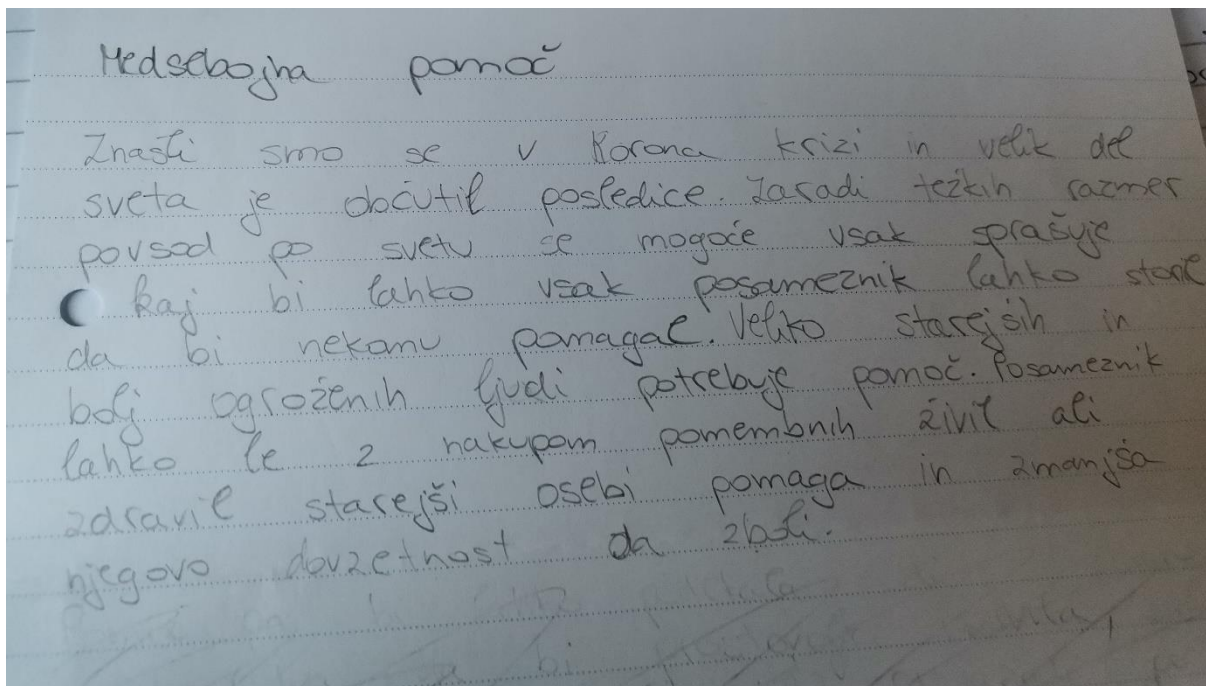 Medsebojna pomoč
Znašli smo se v Korona krizi in velik del
sveta je občutil posledice. Zaradi težkih razmer
povsod po svetu se mogoče vsak sprašuje
kaj bi lahko vsak posameznik lahko storil
da bi nekomu pomagal. Veliko starejših in
bolj ogroženih ljudi potrebuje pomoč. Posameznik
lahko le z nakupom pomembnih živil ali
zdravil starejši osebi pomaga in zmanjša
njegovo dovzetnost da zboli.